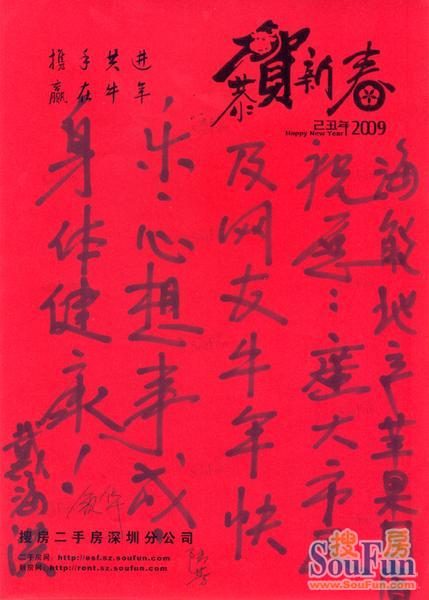 恭賀新春
己丑年 2009
Happy New Year!
携手共进
赢在牛年
地产苹果
祝愿:大市
及网友牛年快
乐、心想事成、
身体健康!
戴海
搜房二手房深圳分公司
二手房网:http://esf.sz.soufun.com
租房网:http://rent.sz.soufun.com
搜房
SouFun
SouFun.com